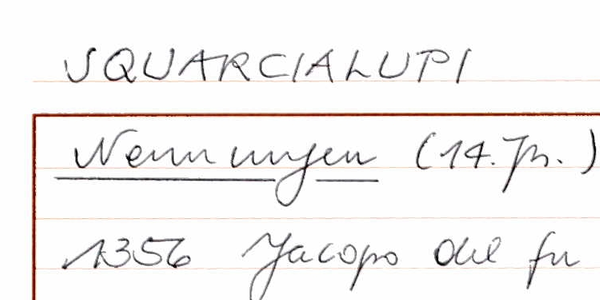 SQUARCIALUPI
Nennungen (14. Jh.)
1356 Jacopo del fu